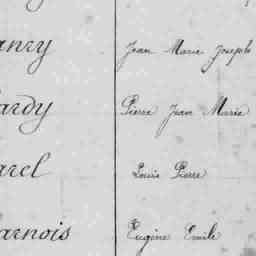 anry Jean Marie Joseph
ardy Pierre Jean Marie
arel Louis Pierre
arnois Eugène Emile